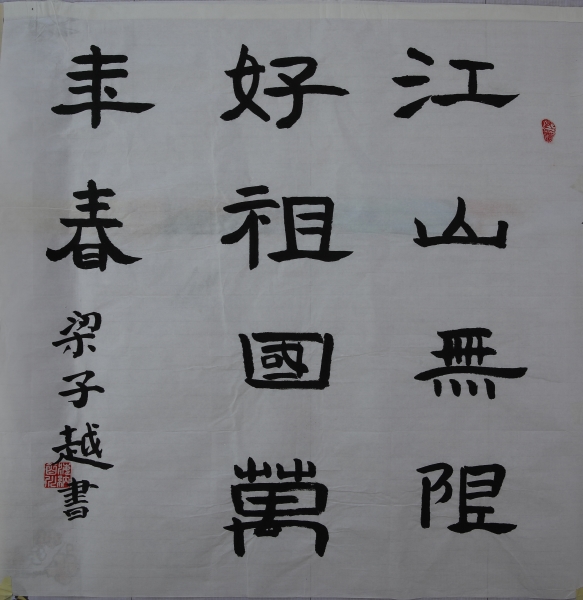 江山無限
好祖國萬
年春
梁子越書